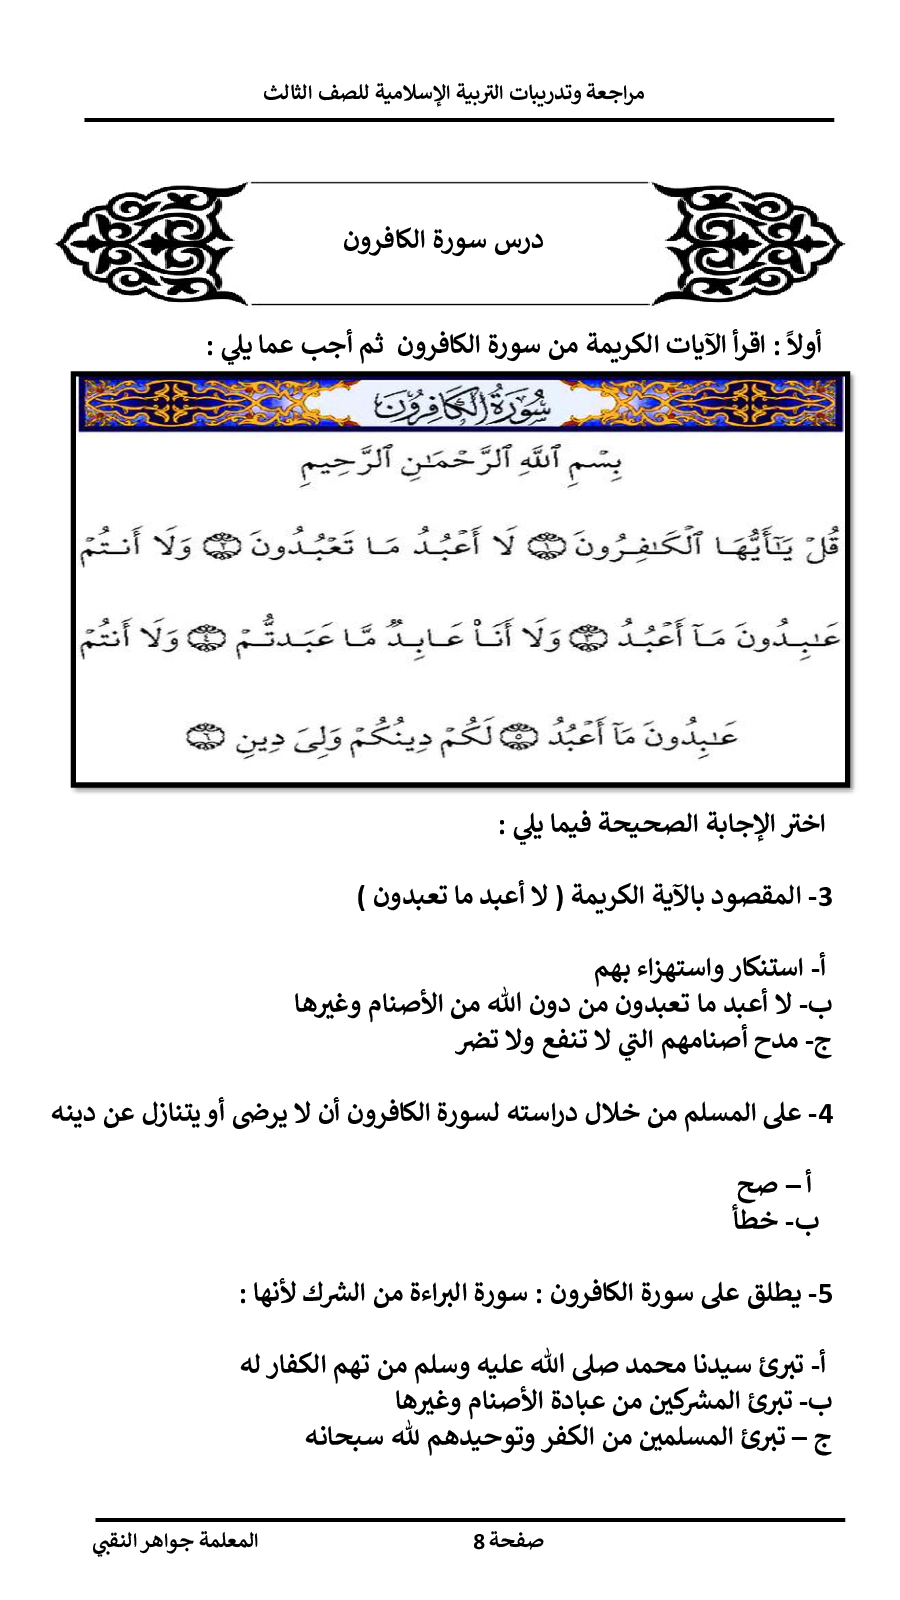 مراجعة وتدريبات التربية الإسلامية للصف الثالث
درس سورة الكافرون
أولاً : اقرأ الآيات الكريمة من سورة الكافرون ثم أجب عما يلي :
سُورَةُ الْكَافِرُونَ
بِسْمِ ٱللَّهِ ٱلرَّحْمَـٰنِ ٱلرَّحِيمِ
قُلْ يَـٰٓأَيُّهَا ٱلْكَـٰفِرُونَ ١ لَا أَعْبُدُ مَا تَعْبُدُونَ ٢ وَلَا أَنتُمْ
عَـٰبِدُونَ مَآ أَعْبُدُ ٣ وَلَا أَنَا۠ عَابِدٌ مَّا عَبَدتُّمْ ٤ وَلَا أَنتُمْ
عَـٰبِدُونَ مَآ أَعْبُدُ ٥ لَكُمْ دِينُكُمْ وَلِىَ دِينِ ٦
اختر الإجابة الصحيحة فيما يلي :
3- المقصود بالآية الكريمة ( لا أعبد ما تعبدون )
أ- استنكار واستهزاء بهم
ب- لا أعبد ما تعبدون من دون الله من الأصنام وغيرها
ج- مدح أصنامهم التي لا تنفع ولا تضر
4- على المسلم من خلال دراسته لسورة الكافرون أن لا يرضى أو يتنازل عن دينه
أ – صح
ب- خطأ
5- يطلق على سورة الكافرون : سورة البراءة من الشرك لأنها :
أ- تبرئ سيدنا محمد صلى الله عليه وسلم من تهم الكفار له
ب- تبرئ المشركين من عبادة الأصنام وغيرها
ج – تبرئ المسلمين من الكفر وتوحيدهم لله سبحانه
صفحة 8
المعلمة جواهر النقبي